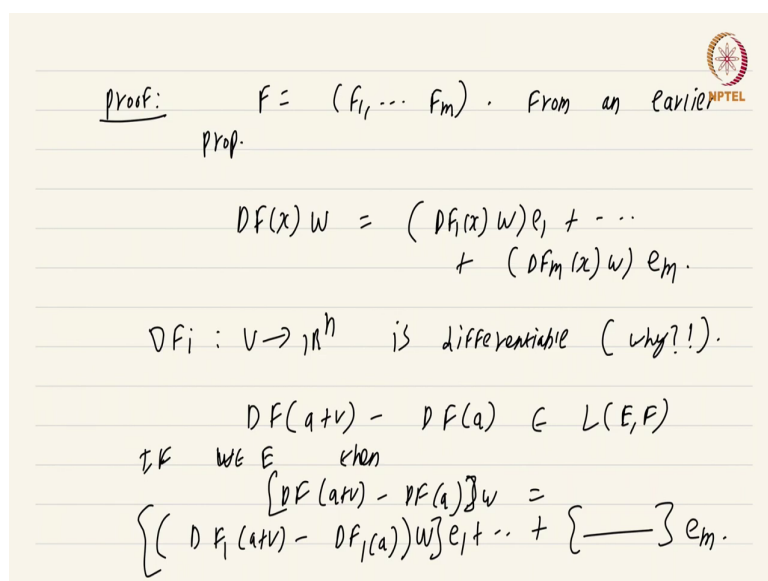 Proof: F = (F1, ... Fm). From an earlier
NPTEL
prop.
DF(x) w = (DF1(x) w) e1 + - - -
+ (DFm (x) w) em.
DFi : U → ℝn is differentiable (why?!).
DF(a+v) - DF(a) ∈ L(E,F)
If w∈ E then
[DF (a+v) - DF(a)]w =
{( DF1 (a+v) - DF1(a))w}e1 + .. + {——} em.